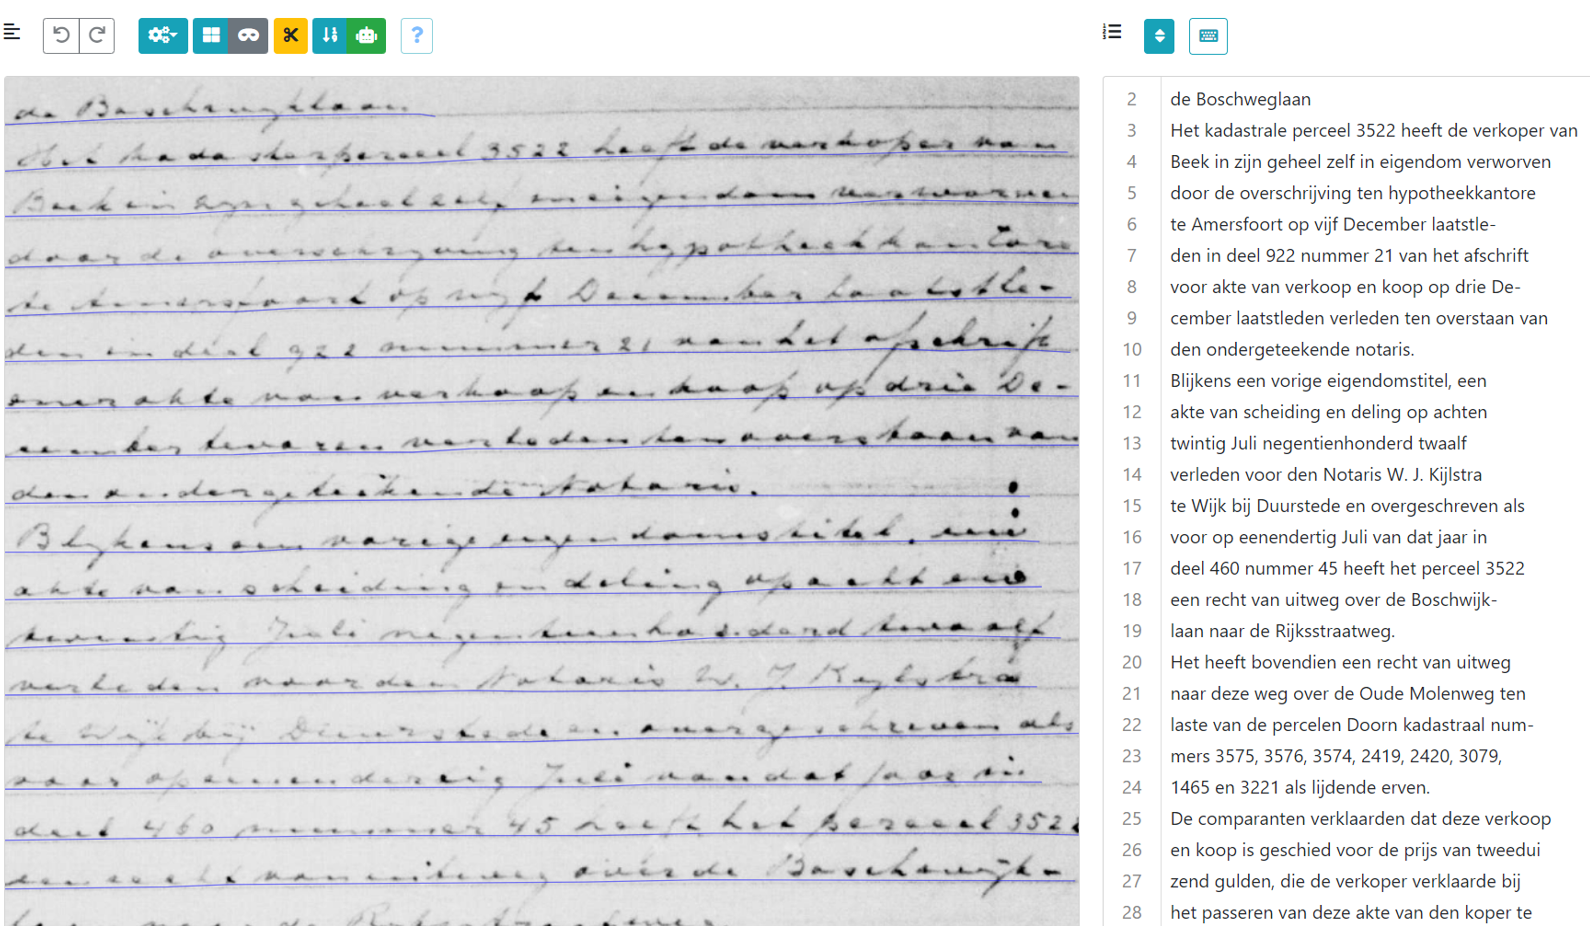 de Boschwijklaan
Het kadasterperceel 3522 heeft de verkoper van
Beek in zijn geheel zelf in eigendom verworven
door de overschrijving ten hypotheekkantore
te Amersfoort op vijf December laatstle-
den in deel 922 nummer 21 van het afschrift
eener akte van verkoop en koop op drie De-
cember tevoren verleden ten overstaan van
den ondergeteekende Notaris.
Blijkens een vorige eigendomstitel, eene
akte van scheiding en deling op acht en
twintig Juli negentienhonderd twaalf
verleden voor den Notaris W. J. Kijlstra
te Wijk bij Duurstede en overgeschreven als
voor op eenendertig Juli van dat jaar in
deel 460 nummer 45 heeft het perceel 3522
een recht van uitweg over de Boschwijk-
2 de Boschweglaan
3 Het kadastrale perceel 3522 heeft de verkoper van
4 Beek in zijn geheel zelf in eigendom verworven
5 door de overschrijving ten hypotheekkantore
6 te Amersfoort op vijf December laatstle-
7 den in deel 922 nummer 21 van het afschrift
8 voor akte van verkoop en koop op drie De-
9 cember laatstleden verleden ten overstaan van
10 den ondergeteekende notaris.
11 Blijkens een vorige eigendomstitel, een
12 akte van scheiding en deling op achten
13 twintig Juli negentienhonderd twaalf
14 verleden voor den Notaris W. J. Kijlstra
15 te Wijk bij Duurstede en overgeschreven als
16 voor op eenendertig Juli van dat jaar in
17 deel 460 nummer 45 heeft het perceel 3522
18 een recht van uitweg over de Boschwijk-
19 laan naar de Rijksstraatweg.
20 Het heeft bovendien een recht van uitweg
21 naar deze weg over de Oude Molenweg ten
22 laste van de percelen Doorn kadastraal num-
23 mers 3575, 3576, 3574, 2419, 2420, 3079,
24 1465 en 3221 als lijdende erven.
25 De comparanten verklaarden dat deze verkoop
26 en koop is geschied voor de prijs van tweedui
27 zend gulden, die de verkoper verklaarde bij
28 het passeren van deze akte van den koper te